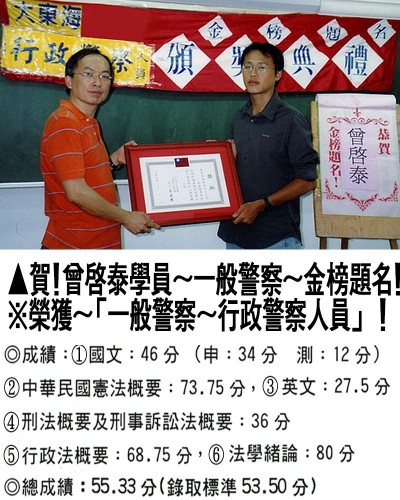 大東海
金榜題名
行政警察人員
頒獎典禮
恭賀
曾啓泰
金榜題名!
▲賀!曾啓泰學員~一般警察~金榜題名!
※榮獲~「一般警察~行政警察人員」!
◎成績:①國文:46分(申:34分 測:12分)
②中華民國憲法概要:73.75分,③英文:27.5分
④刑法概要及刑事訴訟法概要:36分
⑤行政法概要:68.75分,⑥法學緒論:80分
◎總成績:55.33分(錄取標準53.50分)